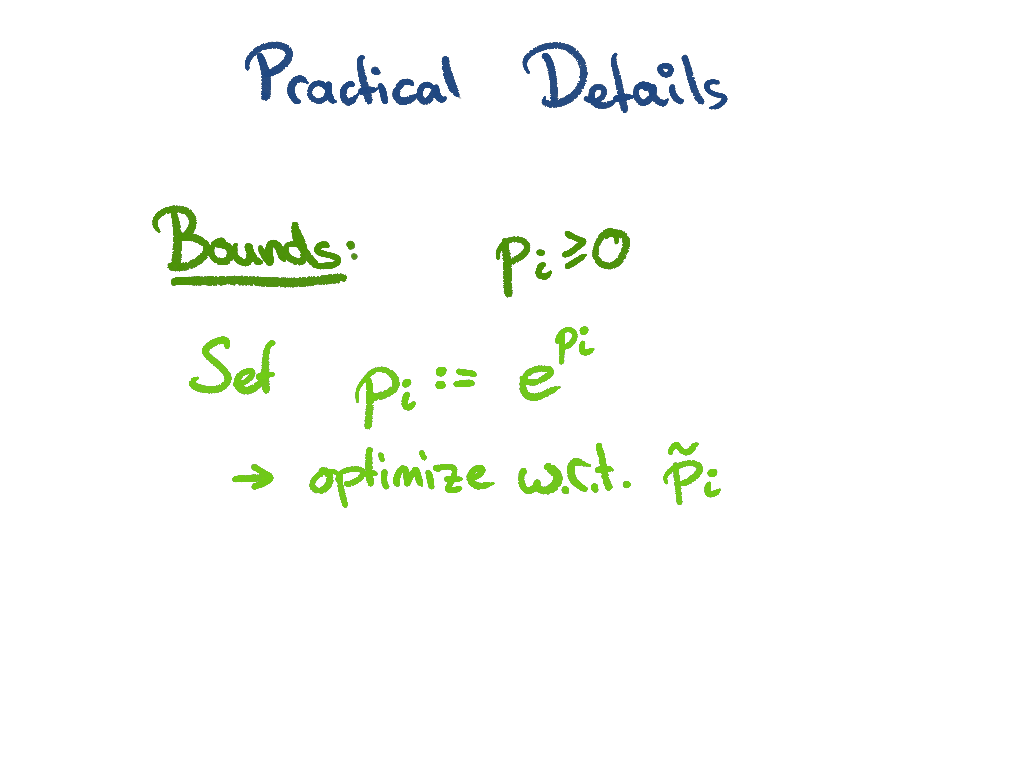 Practical Details
Bounds: pᵢ ≥ 0
Set pᵢ := e^pᵢ
→ optimize w.r.t. p̃ᵢ